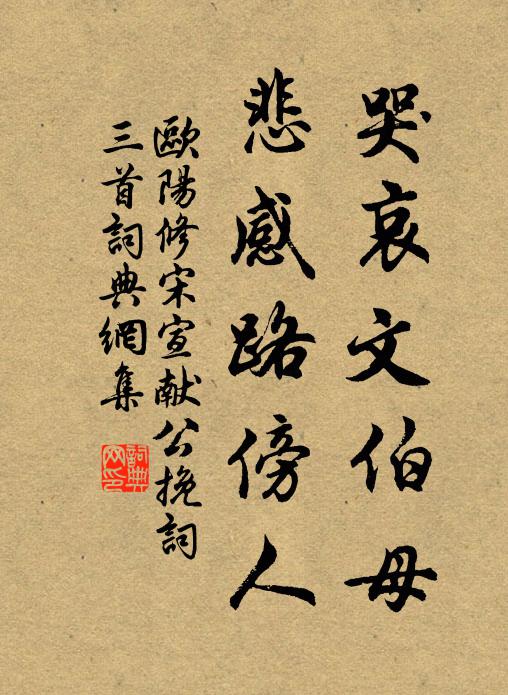 哭哀文伯母
悲感路傍人
歐陽修宋宣献公挽詞
三首詞典網集
詞典
网印